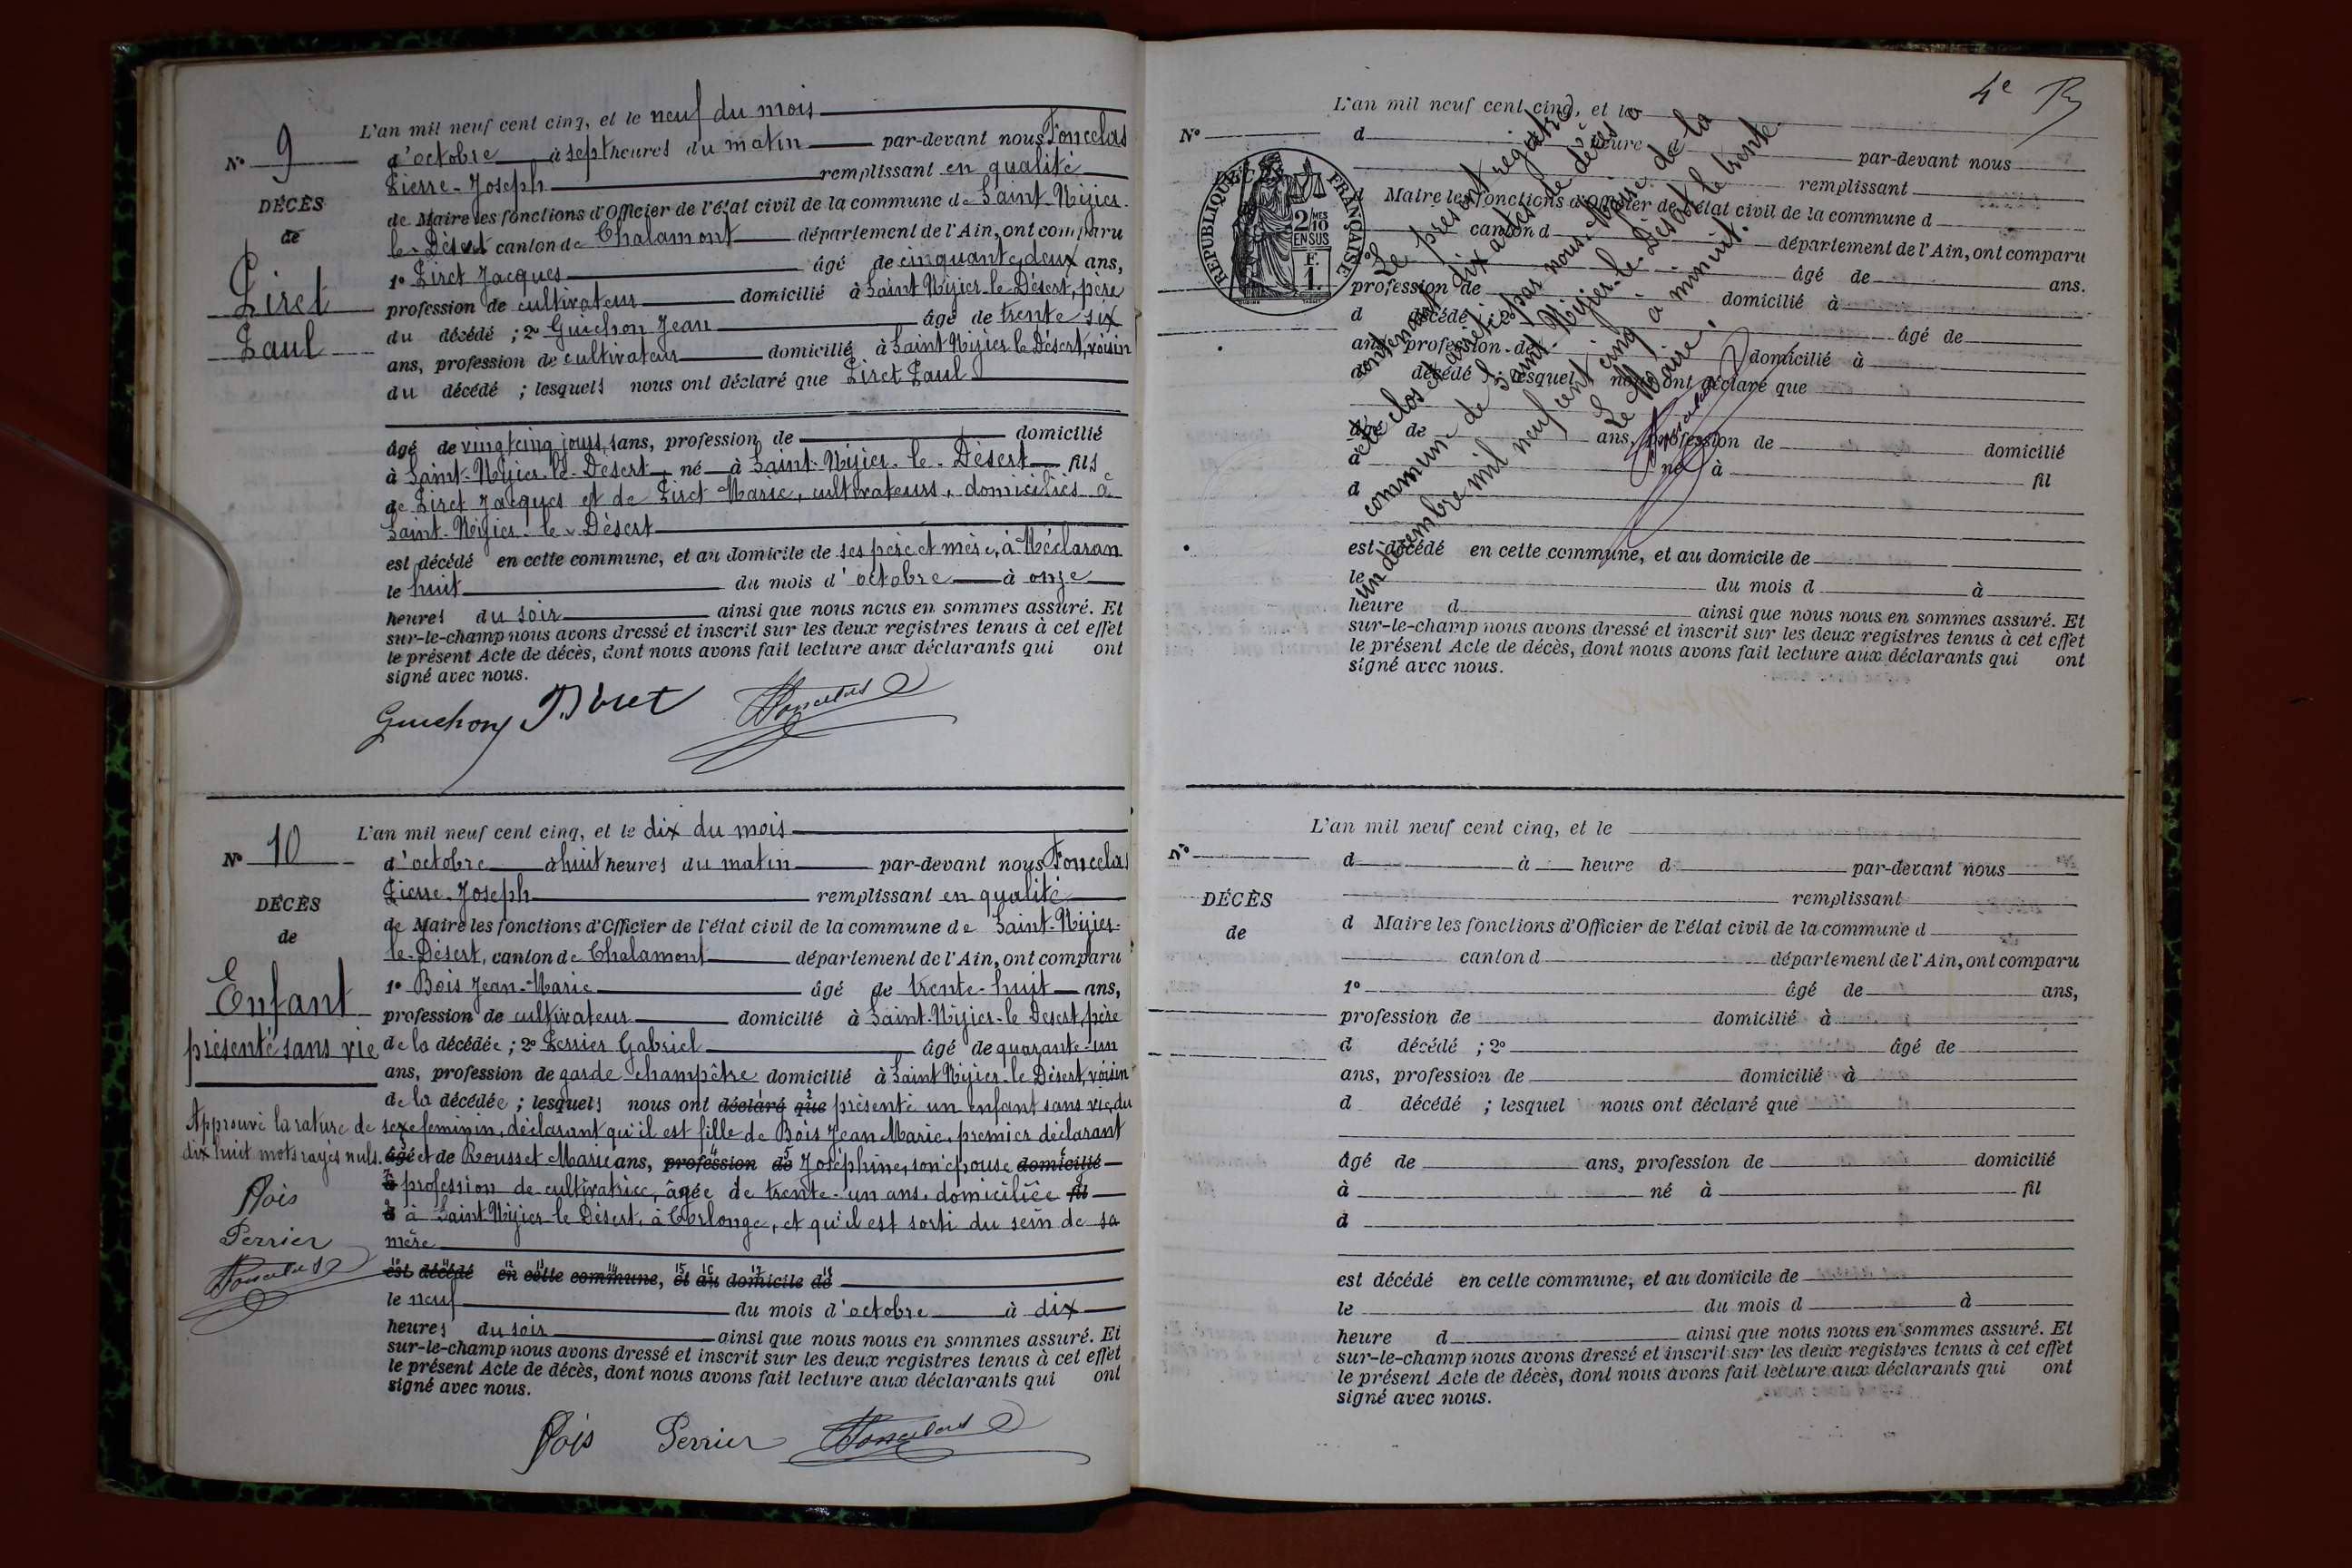 L'an mil neuf cent cinq, et le neuf du mois
N° 9
d'octobre à sept heures du matin par-devant nous Foncelas
Pierre-Joseph remplissant en qualité
DÉCÈS
de Maire les fonctions d'Officier de l'état civil de la commune de Saint-Nizier-
de
le-Désert canton de Chalamont département de l'Ain, ont comparu
1° Piret Jacques âgé de cinquante deux ans,
Piret
profession de cultivateur domicilié à Saint Nizier-le-Désert, père
du décédé ; 2° Guichon Jean âgé de trente six
Paul
ans, profession de cultivateur domicilié à Saint Nizier le Désert, voisin
du décédé ; lesquels nous ont déclaré que Piret Paul
âgé de vingt cinq jours sans, profession de domicilié
à Saint-Nizier-le-Désert né à Saint-Nizier-le-Désert fils
de Piret Jacques et de Piret Marie, cultivateurs, domiciliés à
Saint-Nizier-le-Désert
est décédé en cette commune, et au domicile de ses père et mère, à Méclaran
le huit du mois d'octobre à onze
heures du soir ainsi que nous nous en sommes assuré. Et
sur-le-champ nous avons dressé et inscrit sur les deux registres tenus à cet effet
le présent Acte de décès, dont nous avons fait lecture aux déclarants qui ont
signé avec nous.
Guichon Piret Foncelas
L'an mil neuf cent cinq, et le dix du mois
N° 10
d'octobre à huit heures du matin par-devant nous Foncelas
Pierre-Joseph remplissant en qualité
DÉCÈS
de Maire les fonctions d'Officier de l'état civil de la commune de Saint-Nizier-
de
le-Désert, canton de Chalamont département de l'Ain, ont comparu
1° Bois Jean-Marie âgé de trente-huit ans,
Enfant
profession de cultivateur domicilié à Saint-Nizier-le Désert, père
présenté sans vie
de la décédée ; 2° Perrier Gabriel âgé de quarante-un
ans, profession de garde champêtre domicilié à Saint Nizier-le Désert, voisin
de la décédée ; lesquels nous ont déclaré que présenté un enfant sans vie, du
Approuvé la rature de
sexe féminin, déclarant qu'il est fille de Bois Jean Marie, premier déclarant
dix huit mots rayés nuls.
âgé et de Rousset Marie ans, profession de Joséphine, son épouse domicilié
à profession de cultivatrice, âgée de trente-un ans, domiciliée fil
Bois
d à Saint Nizier le Désert, à Corlonge, et qu'il est sorti du sein de sa
Perrier
mère
Foncelas
est décédé en cette commune, et au domicile de
le neuf du mois d'octobre à dix
heures du soir ainsi que nous nous en sommes assuré. Et
sur-le-champ nous avons dressé et inscrit sur les deux registres tenus à cet effet
le présent Acte de décès, dont nous avons fait lecture aux déclarants qui ont
signé avec nous.
Bois Perrier Foncelas
4e
L'an mil neuf cent cinq, et le
N°
d heure par-devant nous
remplissant
RÉPUBLIQUE FRANÇAISE
2/10 MES
EN SUS
F.
1.
d Maire les fonctions d'Officier de l'état civil de la commune d
canton d département de l'Ain, ont comparu
âgé de ans.
profession de domicilié à
d décédé âgé de
ans, profession de domicilié à
d décédé ; lesquel nous ont déclaré que
âgé de ans, profession de domicilié
à né à fil
d
est décédé en cette commune, et au domicile de
le du mois d à
heure d ainsi que nous nous en sommes assuré. Et
sur-le-champ nous avons dressé et inscrit sur les deux registres tenus à cet effet
le présent Acte de décès, dont nous avons fait lecture aux déclarants qui ont
signé avec nous.
Le présent registre
contenant dix actes de décès a
été clos et arrêté par nous Maire de la
commune de Saint-Nizier-le-Désert le trente
un décembre mil neuf cent cinq à minuit.
Le Maire,
Foncelas
L'an mil neuf cent cinq, et le
N°
d à heure d par-devant nous
remplissant
DÉCÈS
de
d Maire les fonctions d'Officier de l'état civil de la commune d
canton d département de l'Ain, ont comparu
1° âgé de ans,
profession de domicilié à
d décédé ; 2° âgé de
ans, profession de domicilié à
d décédé ; lesquel nous ont déclaré que
âgé de ans, profession de domicilié
à né à fil
d
est décédé en cette commune, et au domicile de
le du mois d à
heure d ainsi que nous nous en sommes assuré. Et
sur-le-champ nous avons dressé et inscrit sur les deux registres tenus à cet effet
le présent Acte de décès, dont nous avons fait lecture aux déclarants qui ont
signé avec nous.